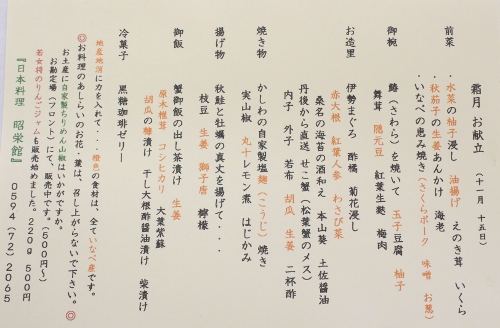 霜月 お献立 (十一月 十五日)
前菜 ・水菜の柚子浸し 油揚げ えのき茸 いくら
・秋茄子の生姜あんかけ 海老
・いなべの恵み焼き(さくらポーク 味噌 お葱)
御椀 鰆(さわら)を焼いて 玉子豆腐 柚子
舞茸 隠元豆 紅葉生麩 梅肉
お造里 伊勢まぐろ 酢橘 菊花浸し
赤大根 紅葉人参 わさび菜
桑名の海苔の酒和え 本山葵 土佐醤油
丹後から直送 せこ蟹(松葉蟹のメス)
内子 外子 若布 胡瓜 生姜 二杯酢
焼き物 かしわの自家製塩麹(こうじ)焼き
実山椒 丸十レモン煮 はじかみ
揚げ物 秋鮭と牡蠣の真丈を揚げて・・・
枝豆 生姜 獅子唐 檸檬
御飯 蟹御飯の出し茶漬け 生姜
原木椎茸 コシヒカリ 大葉紫蘇
胡瓜の糠漬け 干し大根酢醤油漬け 柴漬け
冷菓子 黒糖珈琲ゼリー
地産地消に力を入れて・・・橙色の食材は、全ていなべ産です。
◎お料理のあしらいのお花・葉は、召し上がらないで下さい。◎
お土産に自家製ちりめん山椒はいかがですか。
お勘定場(フロント)にて、販売中です。(500円~)
若女将のりんごジャムも販売始めました。220g 500円
『日本料理 昭栄館』 0594(72)2065